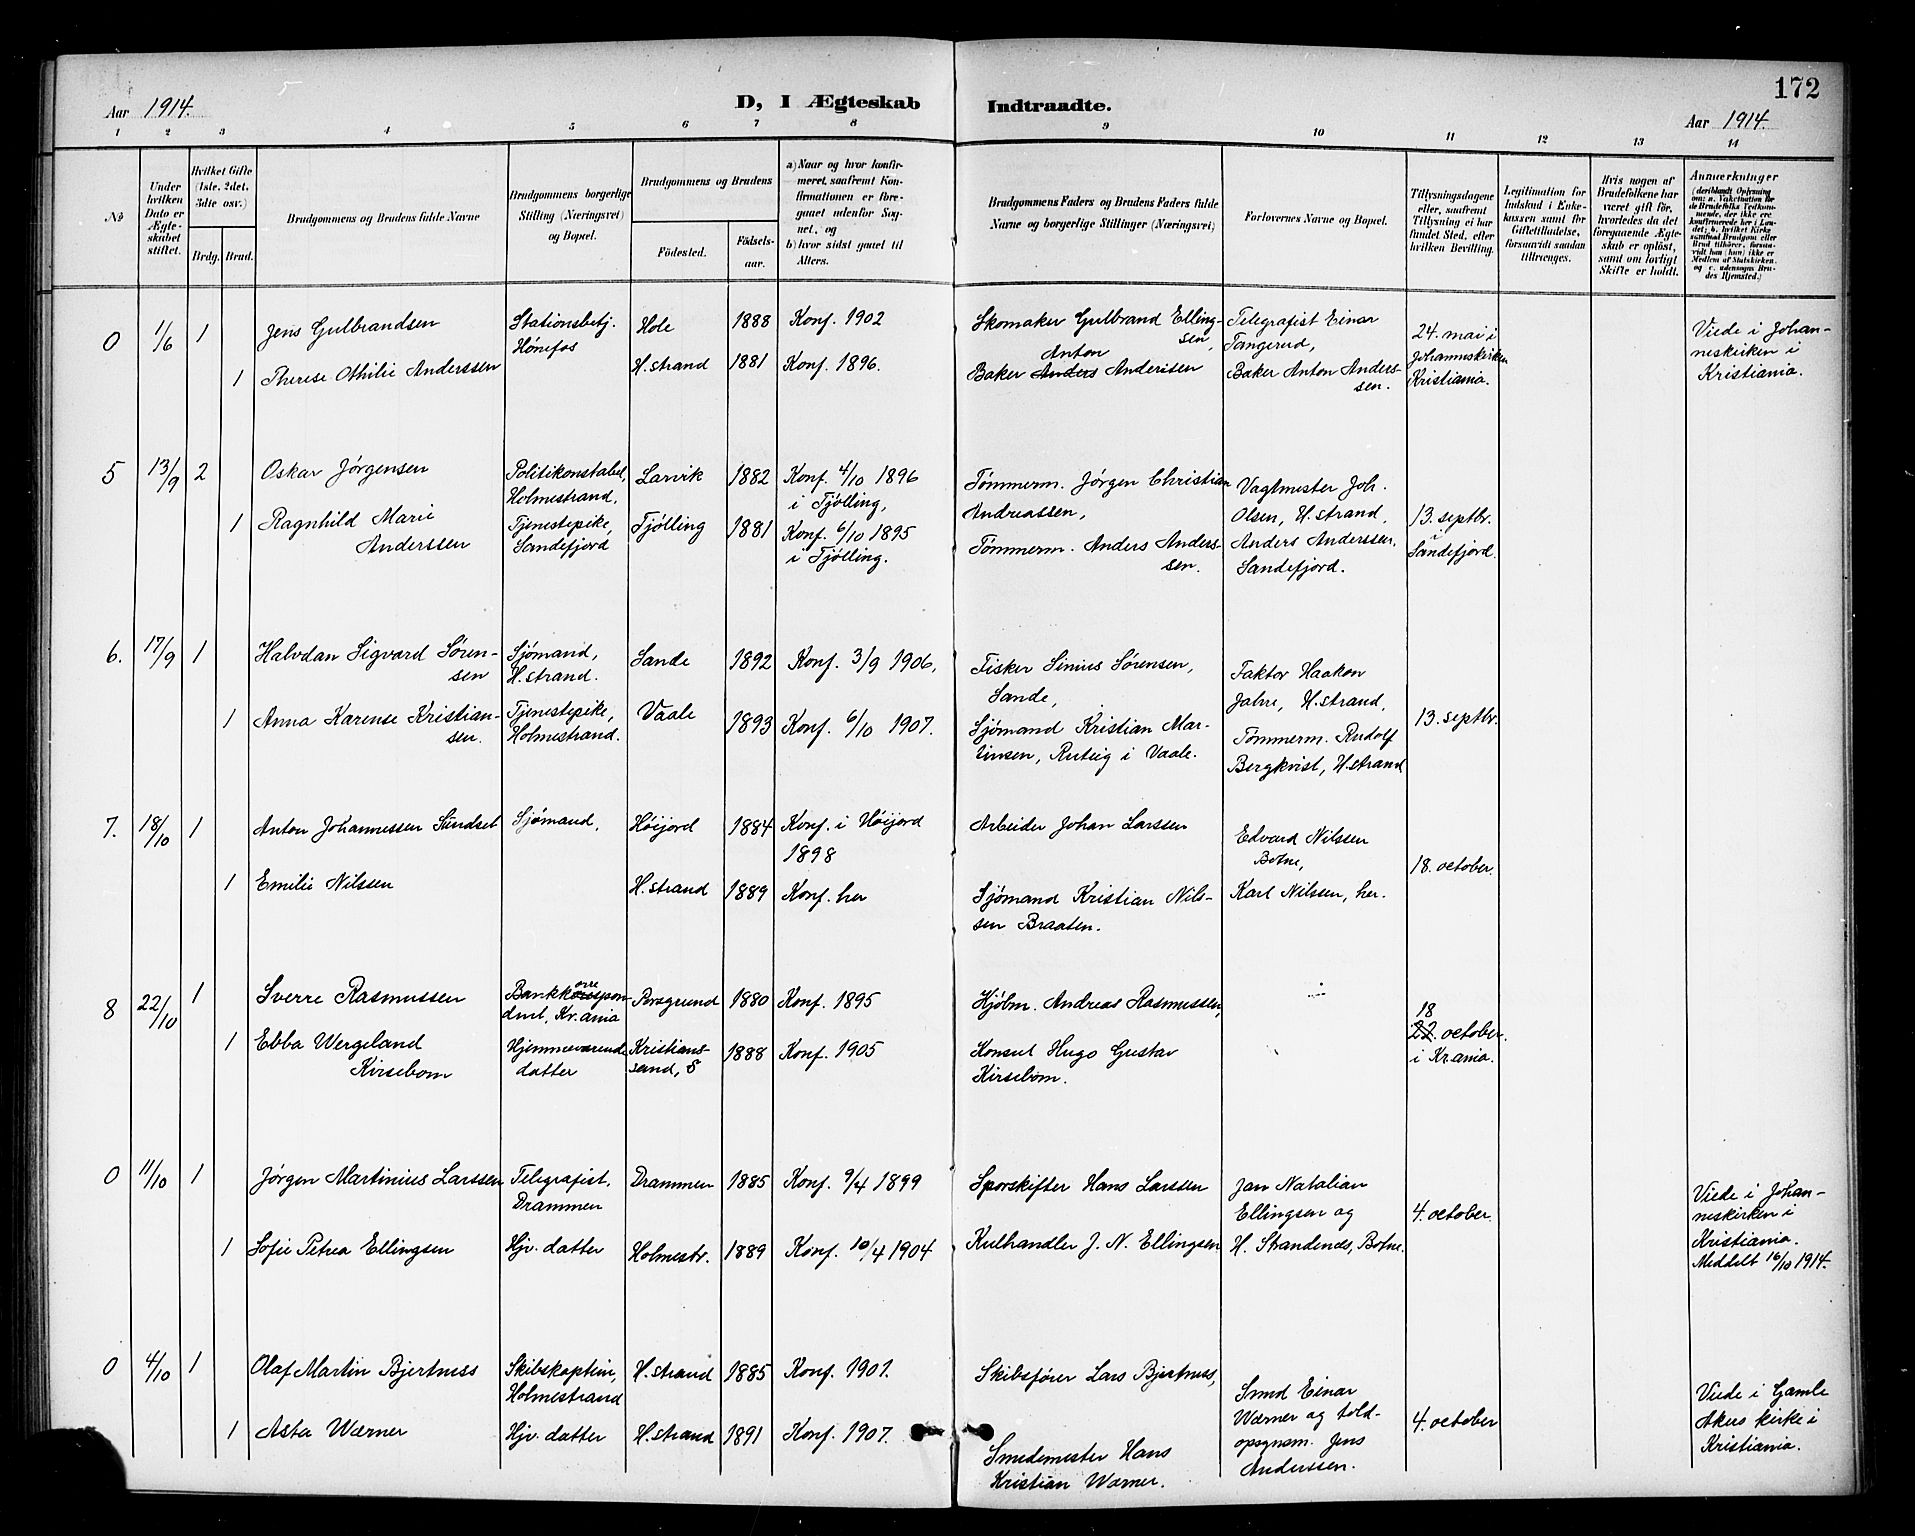 172
Aar 1914. D, I Ægteskab Indtraadte. Aar 1914.
1 2 3 4 5 6 7 8 9 10 11 12 13 14
№
Under hvilken Dato er Ægteskabet stiftet.
Hvilket Gifte (1ste, 2det, 3dte osv.)
Brdg. Brud.
Brudgommens og Brudens fulde Navne
Brudgommens borgerlige Stilling (Næringsvei) og Bopæl.
Brudgommens og Brudens
Födested. Födselsaar.
a) Naar og hvor konfirmeret, saafremt Konfirmationen er foregaaet udenfor Sognet, og
b) hvor sidst gaaet til Alters.
Brudgommens Faders og Brudens Faders fulde Navne og borgerlige Stillinger (Næringsvei)
Forlovernes Navne og Bopæl.
Tillysningsdagene eller, saafremt Tillysning ei har fundet Sted, efter hvilken Bevilling.
Legitimation for Indskud i Enkekassen samt for Giftetilladelse, forsaavidt saadan tiltrænges.
Hvis nogen af Brudefolkene har været gift för, hvorledes da det foregaaende Ægteskab er oplöst, samt om lovligt Skifte er holdt.
Anmærkninger (deriblandt Oplysning om: a. Vakcination for de Brudefolks Vedkommende, der ikke ere konfirmerede her i Landet; b. hvilket Kirkesamfund Brudgom eller Brud tilhörer, forsaavidt han (hun) ikke er Medlem af Statskirken, og c. udensogns Brudes Hjemsted.)
0 1/6 1 Jens Gulbrandsen
Stationsbetj.
Hönefos
Hole 1888 Konf. 1902
Skomaker Gulbrand Elling-
sen,
Telegrafist Einar
Tangerud,
24. mai i
Johanneskirken
Kristiania.
Viede i Johan-
neskirken i
Kristiania.
1 Therese Othilie Anderssen
H.strand 1881 Konf. 1896.
Anton
Baker Anders Anderssen
Baker Anton Anders-
sen.
5 13/9 2 Oskar Jörgensen
Politikonstabel,
Holmestrand,
Larvik 1882 Konf. 4/10 1896
i Tjölling,
Tömmerm. Jörgen Christian
Andreassen,
Vagtmester Joh.
Olsen, H.strand,
13. septbr.
i
Sandefjord.
1 Ragnhild Marie
Anderssen
Tjenestepike,
Sandefjord
Tjölling 1881 Konf. 6/10 1895
i Tjölling.
Tömmerm. Anders Anders-
sen.
Anders Anderssen,
Sandefjord.
6. 17/9 1 Halvdan Sigvard Sören-
sen
Sjömand,
H.strand.
Sande 1892 Konf. 3/9 1906,
Fisker Sinius Sörensen,
Sande,
Faktor Haakon
Jahre, H.strand,
13. septbr.
1 Anna Karense Kristian-
sen.
Tjenestepike,
Holmestrand.
Vaale 1893 Konf. 6/10 1907.
Sjömand Kristian Mar-
tinsen, Ruteig i Vaale.
Tömmerm. Rudolf
Bergkvist, H.strand
7. 18/10 1 Anton Johannessen Sundset
Sjömand,
Höijord 1884 Konf. i Höijord
1898
Arbeider Johan Larssen
Edvard Nilssen
Botne,
18. october.
1 Emilie Nilssen
H.strand 1889 Konf. her
Sjömand Kristian Nils-
sen Braaten.
Karl Nilssen, her.
8 22/10 1 Sverre Rasmussen
Bankkorrespon-
dent, Kr.ania
Porsgrund 1880 Konf. 1895
Hjölm. Andreas Rasmussen,
18
22. october.
i Krania.
1 Ebba Wergeland
Kirsebom
Hjemmeværende
datter
Kristians-
sand, S
1888 Konf. 1905
Konsul Hugo Gustav
Kirsebom.
0 11/10 1 Jörgen Martinius Larssen
Telegrafist,
Drammen
Drammen 1885 Konf. 9/4 1899
Sporskifter Hans Larssen
Jan Natalian
Ellingsen og
4. october.
Viede i Johan-
neskirken i
Kristiania.
Meddelt 16/10 1914.
1 Sofie Petrea Ellingsen
Hjv. datter
Holmestr. 1889 Konf. 10/4 1904
Kulhandler J. N. Ellingsen
H. Strandenæs, Botne.
0 4/10 1 Olaf Martin Bjertnæss
Skibskaptein,
Holmestrand
H.strand 1885 Konf. 1901.
Skibsförer Lars Bjertnæss,
Smed Einar
Wærner og told-
opsynsm. Jens
Anderssen.
4. october
Viede i Gamle
Akers kirke i
Kristiania.
1 Asta Wærner
Hjv. datter
H.strand 1891 Konf. 1907.
Smedemester Hans
Kristian Wærner.